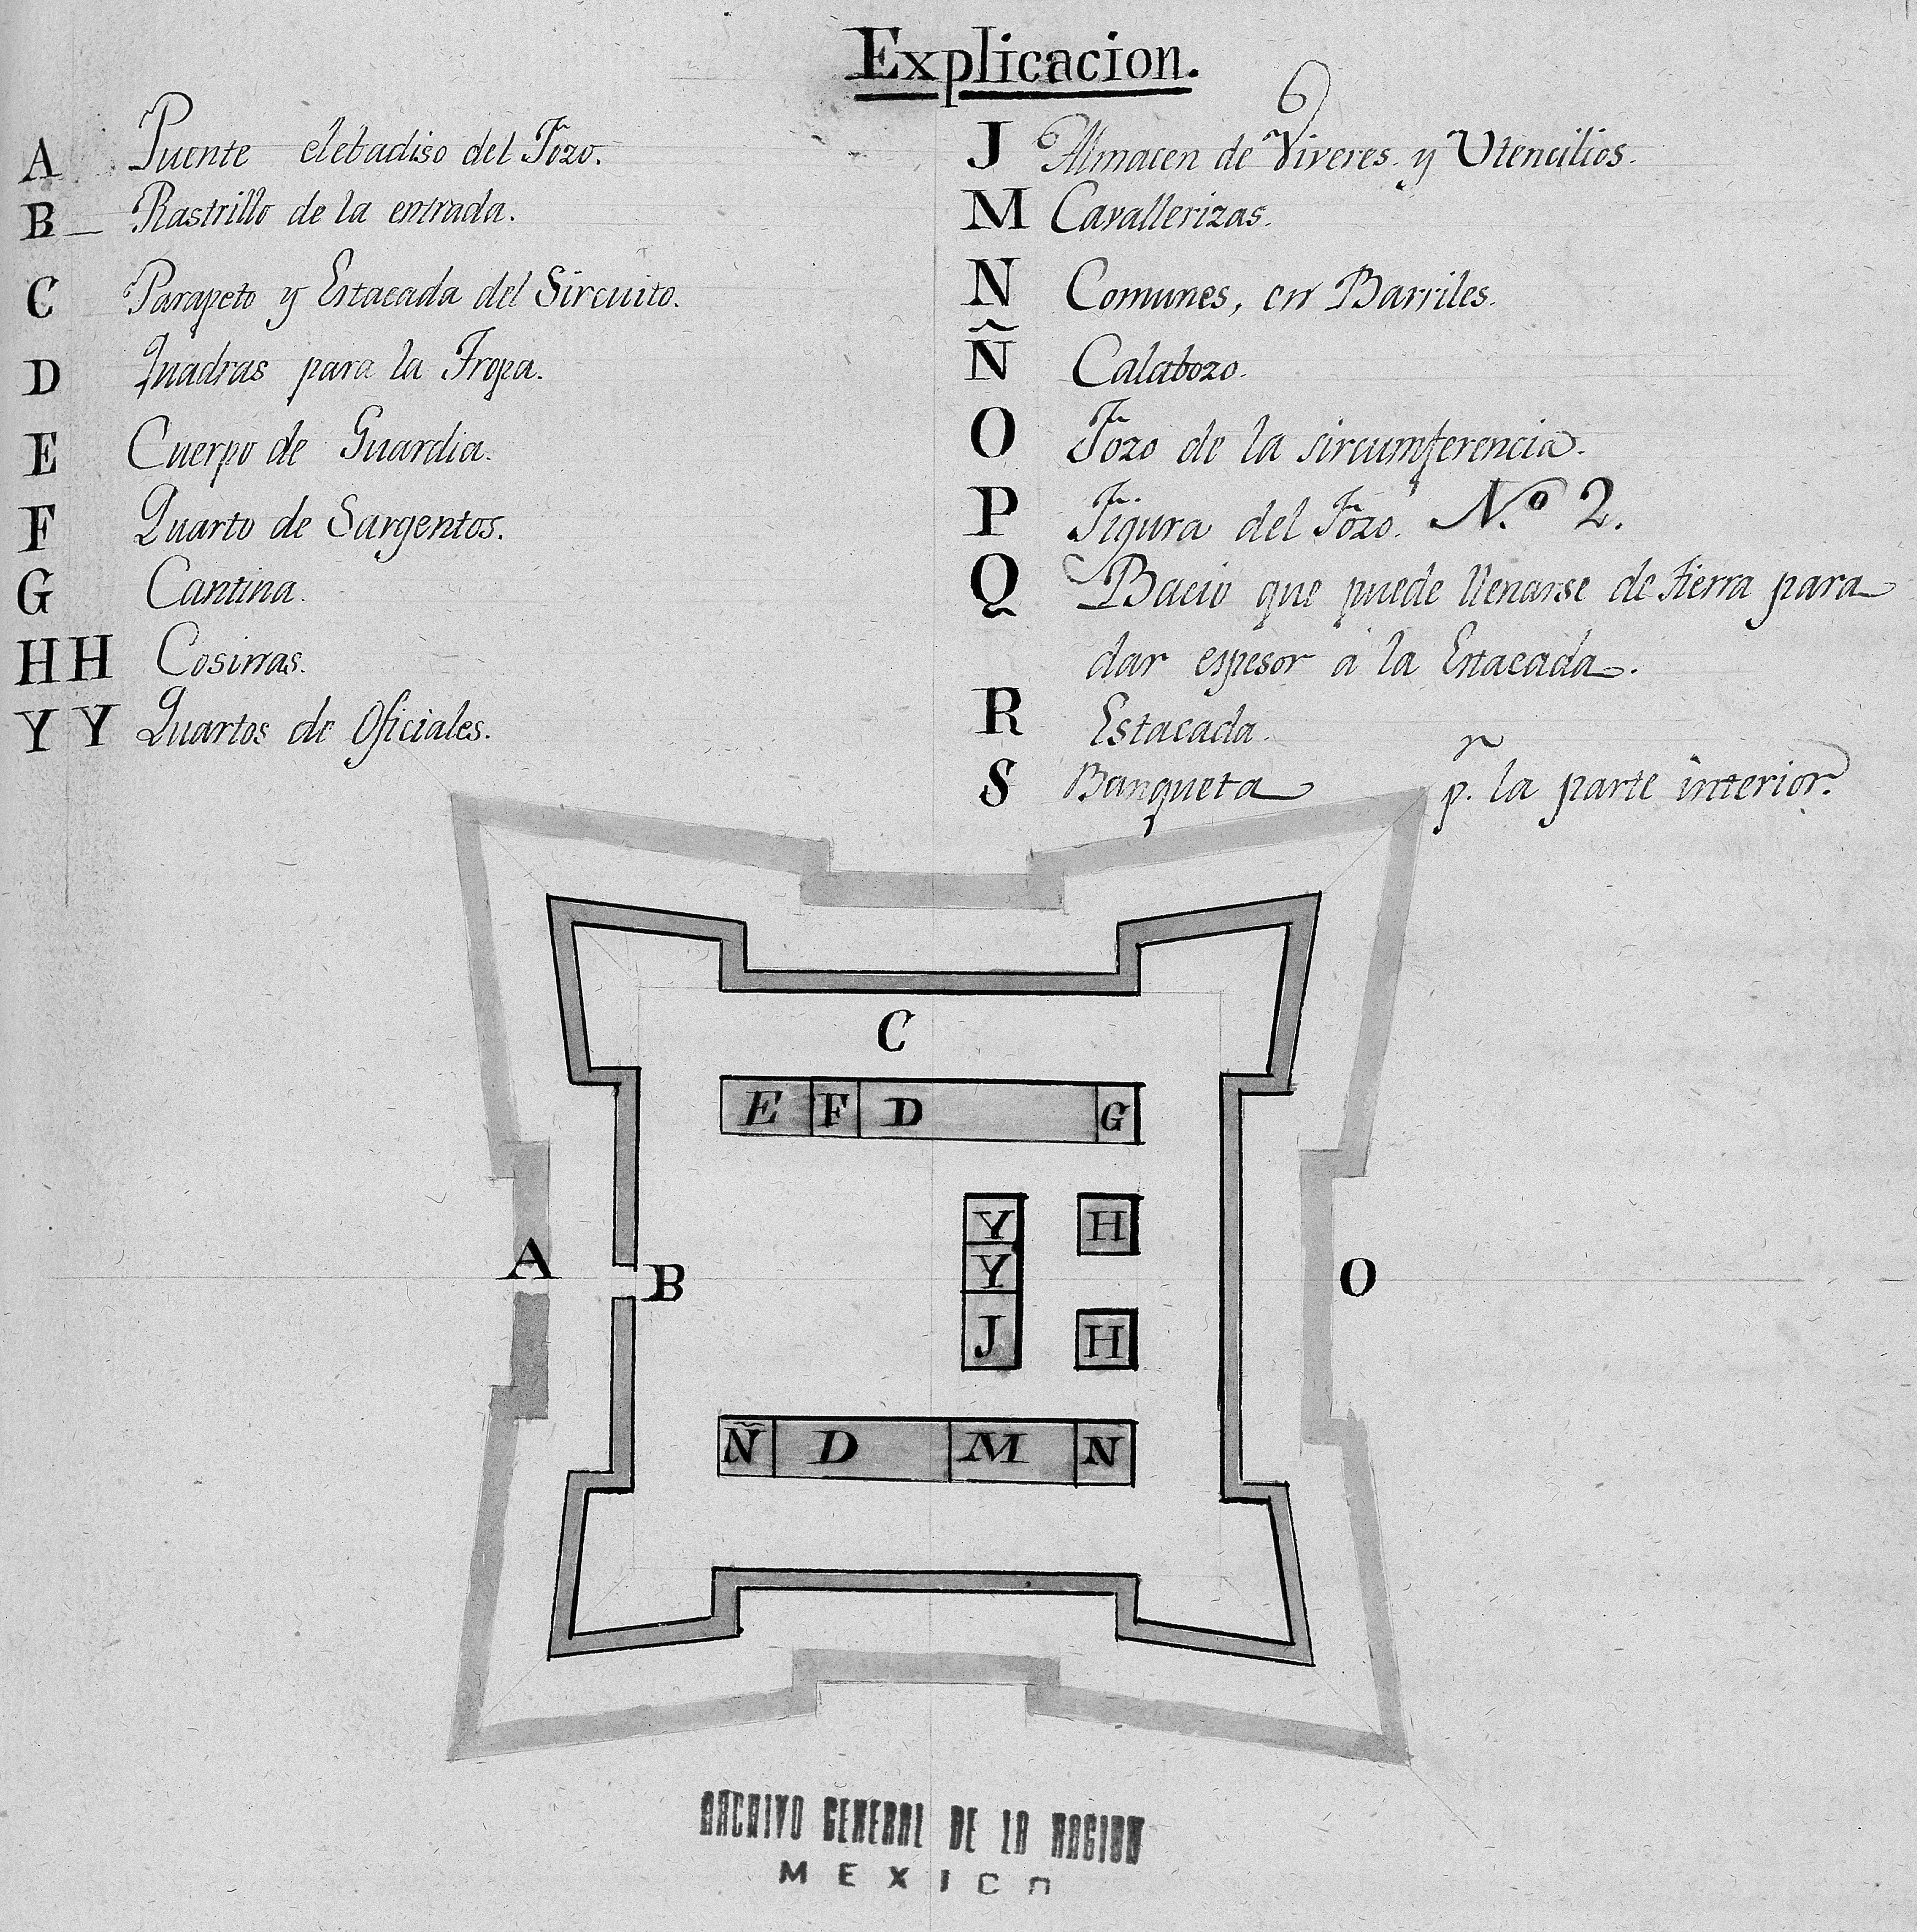 Explicacion.
A Puente elebadiso del Fozo.
B Rastrillo de la entrada.
C Parapeto y Estacada del Sircuito.
D Quadras para la Tropa.
E Cuerpo de Guardia.
F Quarto de Sargentos.
G Cantina.
HH Cosinas.
YY Quartos de Oficiales.
J Almacen de Viveres. y Utencilios.
M Cavallerizas.
N Comunes, en Barriles.
Ñ Calabozo.
O Fozo de la sircumferencia.
P Figura del Fozo. N.º 2.
Q Bacio que puede llenarse de tierra para
dar espesor á la Estacada.
R Estacada.
S Banqueta p.r la parte interior.
C
E F D G
Y H
Y
A B O
J H
Ñ D M N
ARCHIVO GENERAL DE LA NACION
MEXICO